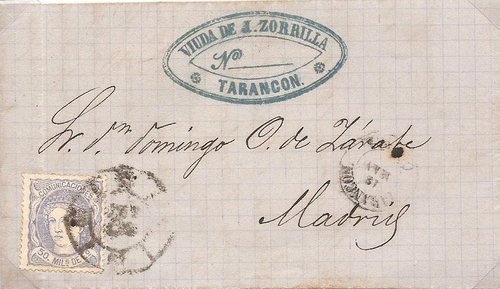 VIUDA DE J. ZORRILLA
No
TARANCON.
Sr. Dn. Domingo O. de Zárate
Madrid
COMUNICACIONES
50 MILS. DE E.
TARANCON